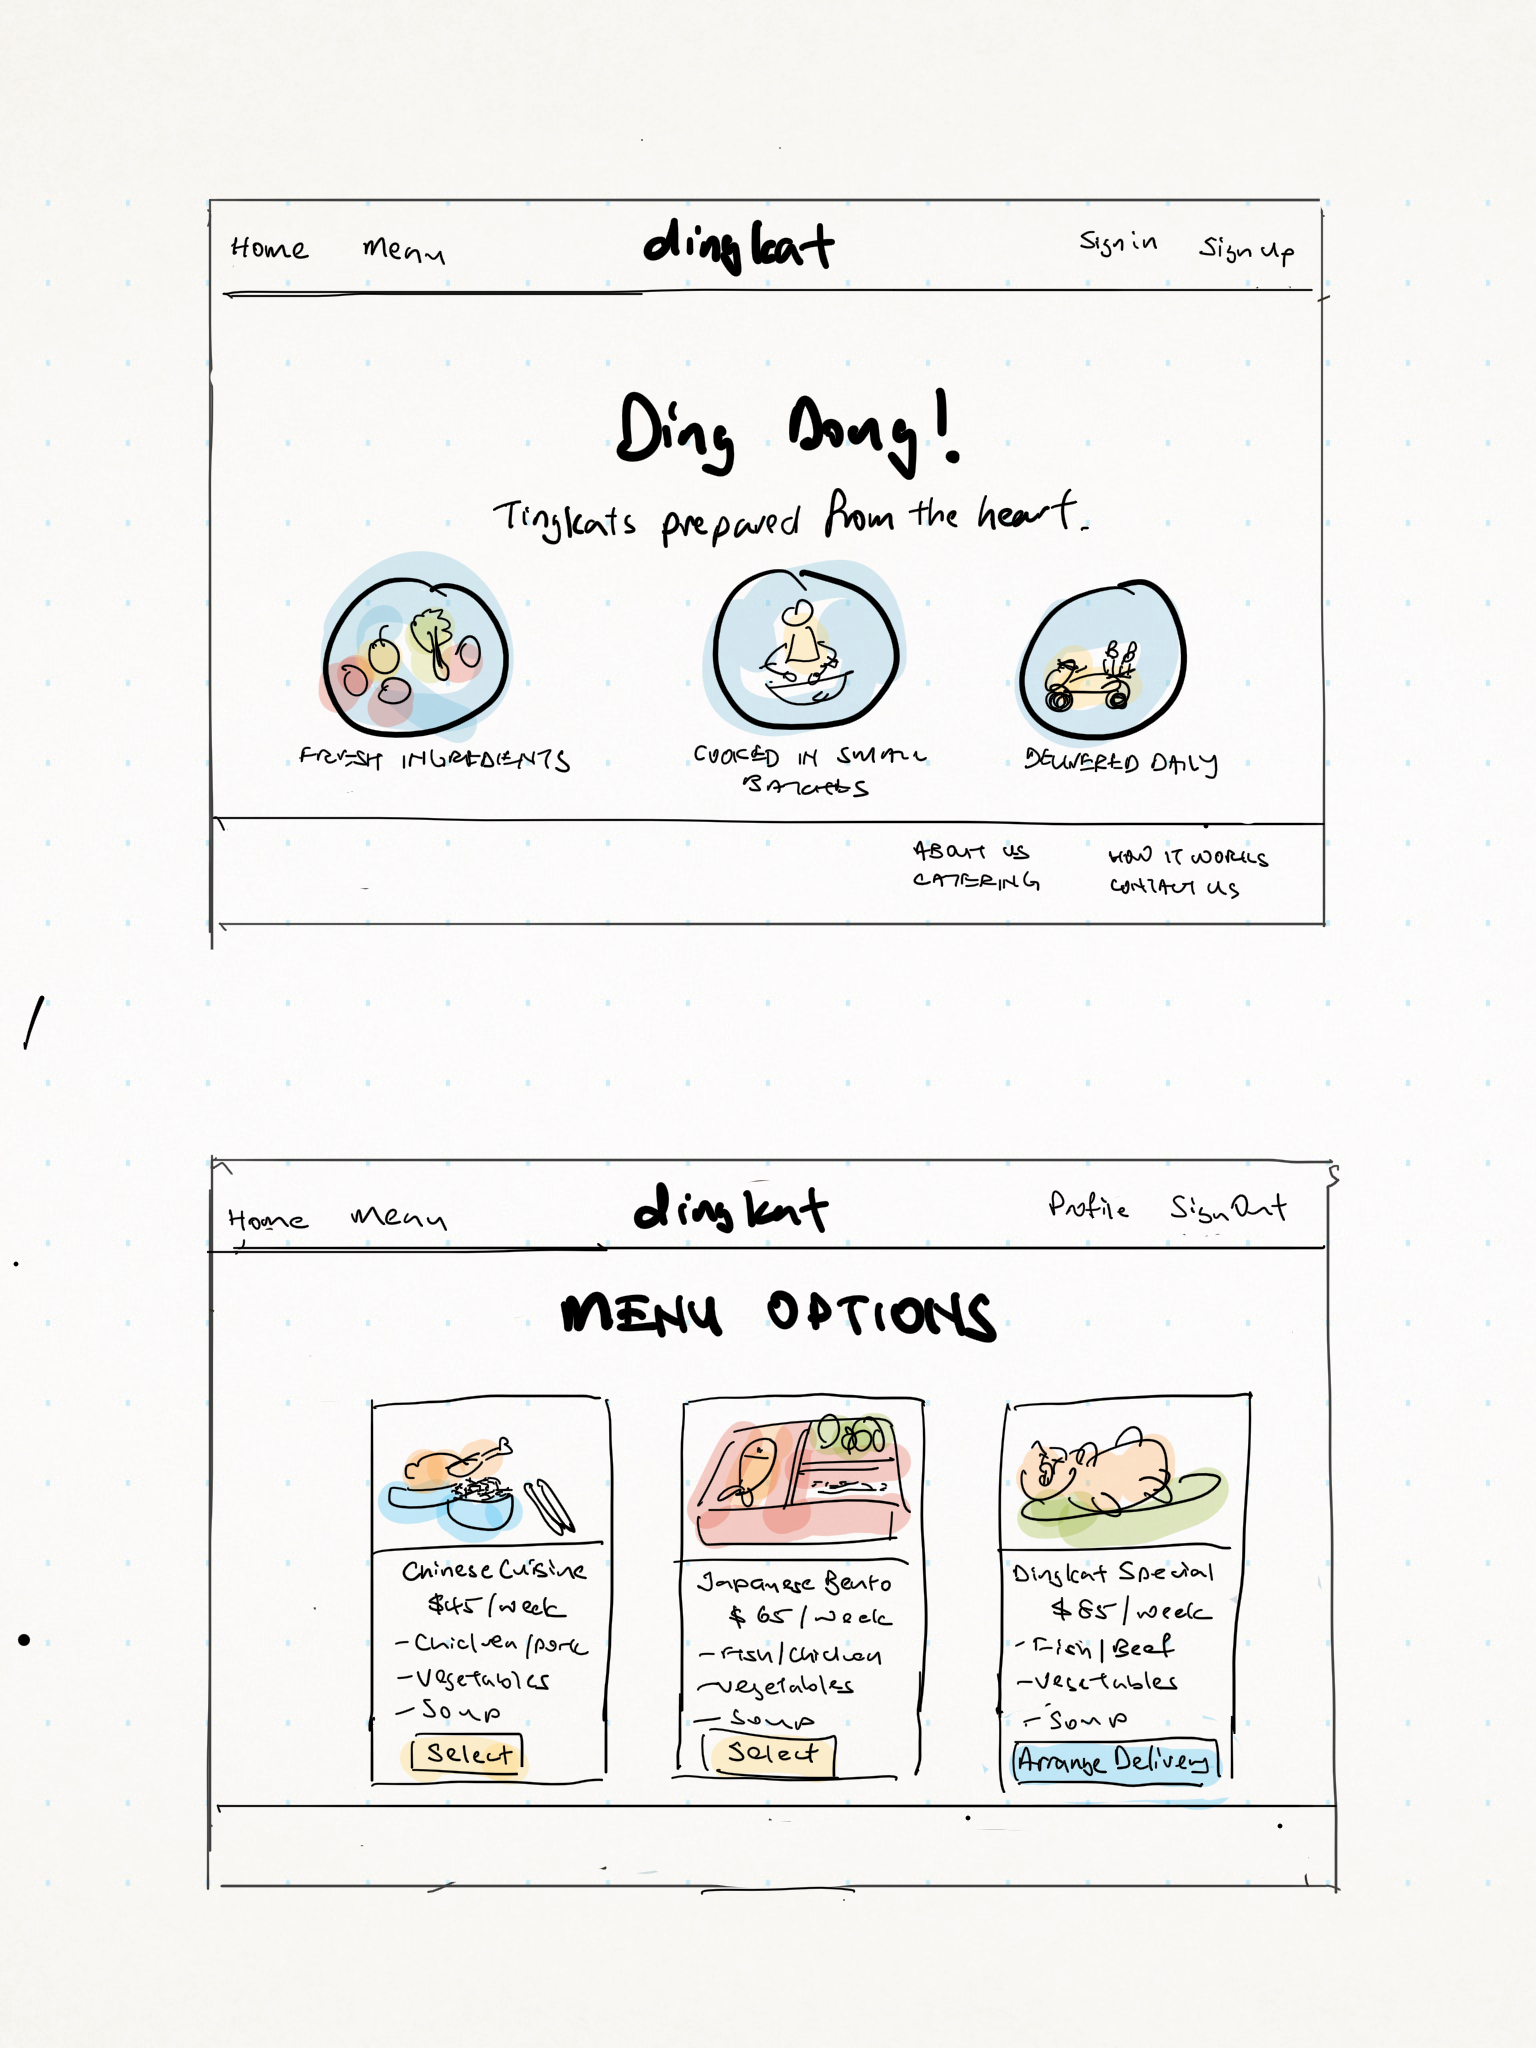 Home Menu dingkat Sign in Sign Up
Ding Dong!
Tingkats prepared from the heart.
FRESH INGREDIENTS
COOKED IN SMALL
BATCHES
DELIVERED DAILY
ABOUT US
CATERING
HOW IT WORKS
CONTACT US
Home Menu dingkat Profile Sign Out
MENU OPTIONS
Chinese Cuisine
$45/week
- Chicken/pork
- Vegetables
- Soup
Select
Japanese Bento
$65/week
- Fish/Chicken
- Vegetables
- Soup
Select
Dingkat Special
$85/week
- Fish/Beef
- Vegetables
- Soup
Arrange Delivery